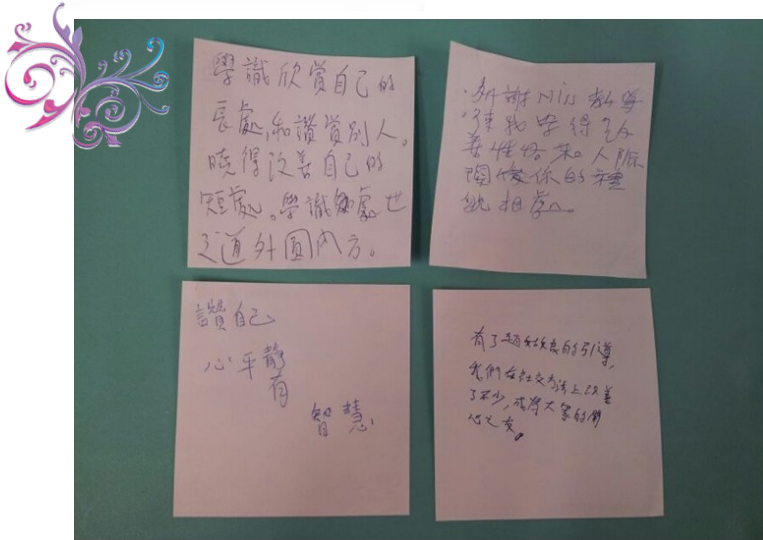 學識欣賞自己的
長處,和讚賞別人。
曉得改善自己的
短處。學識處世
之道外圓内方。
謝謝Miss教導
使我學得改
善性格和人際
關係你的
相處。
讚自己
心平靜
有
智慧
有了 的引導,
我們在社交方法上改善
了不少,成為大家的開
心之友。